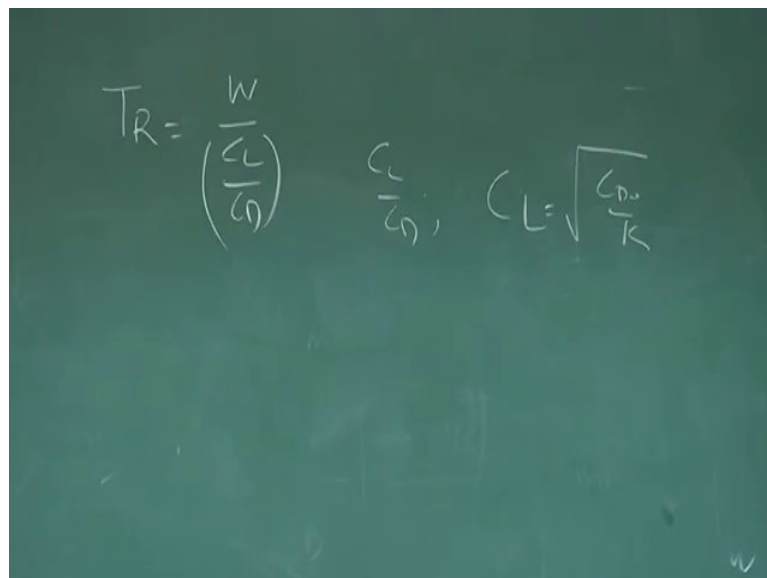 T_R = W / (C_L / C_D)    C_L / C_D,    C_L = √(C_D₀ / K)